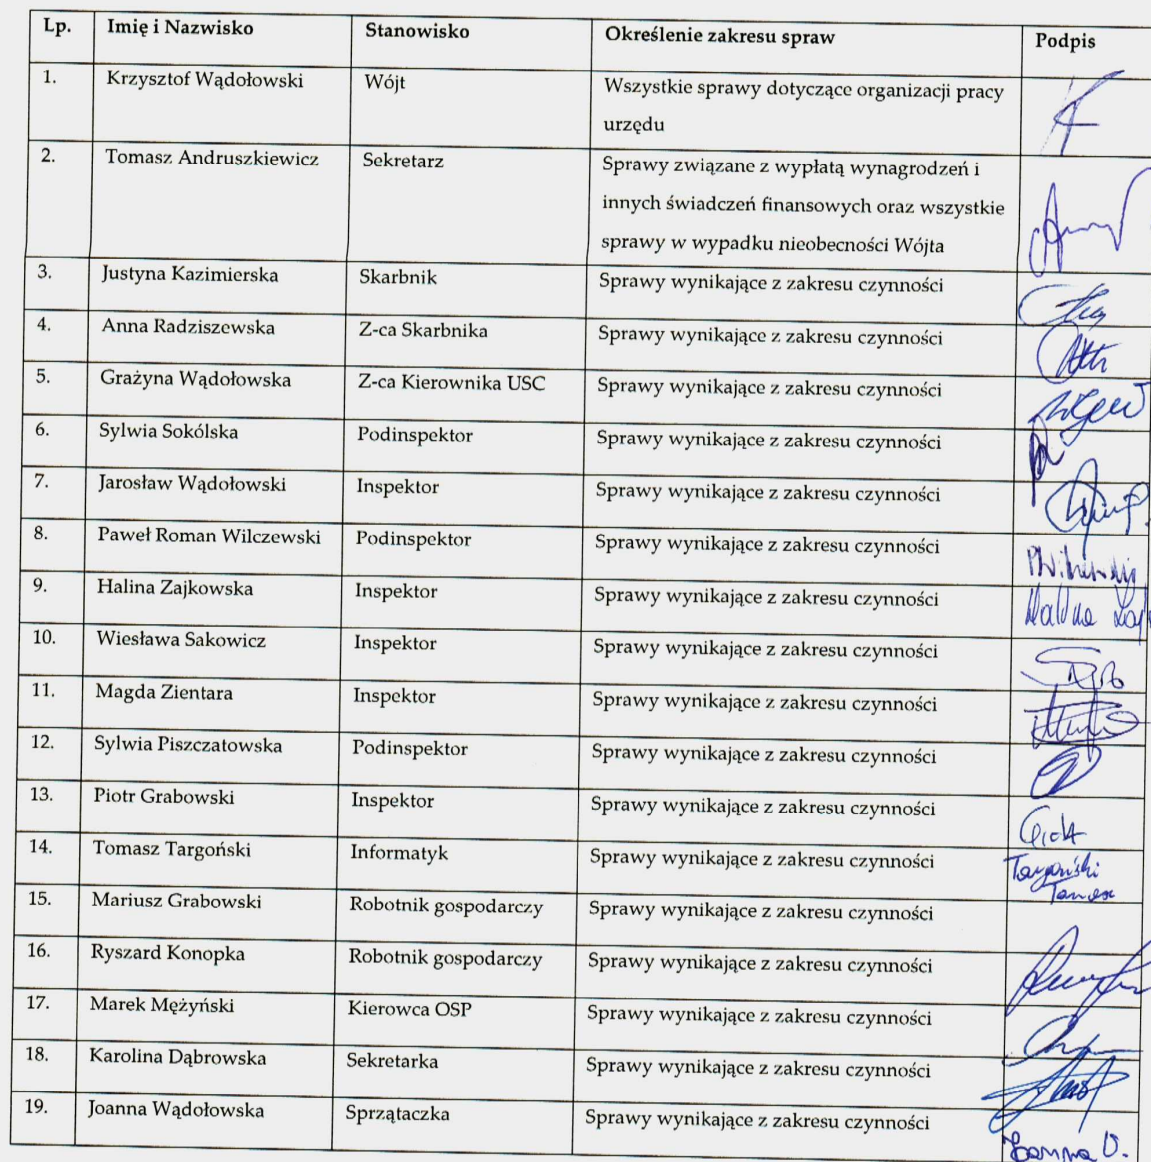 Lp. Imię i Nazwisko Stanowisko Określenie zakresu spraw Podpis
1. Krzysztof Wądołowski Wójt Wszystkie sprawy dotyczące organizacji pracy
urzędu
2. Tomasz Andruszkiewicz Sekretarz Sprawy związane z wypłatą wynagrodzeń i
innych świadczeń finansowych oraz wszystkie
sprawy w wypadku nieobecności Wójta
3. Justyna Kazimierska Skarbnik Sprawy wynikające z zakresu czynności
4. Anna Radziszewska Z-ca Skarbnika Sprawy wynikające z zakresu czynności
5. Grażyna Wądołowska Z-ca Kierownika USC Sprawy wynikające z zakresu czynności
6. Sylwia Sokólska Podinspektor Sprawy wynikające z zakresu czynności
7. Jarosław Wądołowski Inspektor Sprawy wynikające z zakresu czynności
8. Paweł Roman Wilczewski Podinspektor Sprawy wynikające z zakresu czynności
9. Halina Zajkowska Inspektor Sprawy wynikające z zakresu czynności
10. Wiesława Sakowicz Inspektor Sprawy wynikające z zakresu czynności
11. Magda Zientara Inspektor Sprawy wynikające z zakresu czynności
12. Sylwia Piszczatowska Podinspektor Sprawy wynikające z zakresu czynności
13. Piotr Grabowski Inspektor Sprawy wynikające z zakresu czynności
14. Tomasz Targoński Informatyk Sprawy wynikające z zakresu czynności Targoński
Tomasz
15. Mariusz Grabowski Robotnik gospodarczy Sprawy wynikające z zakresu czynności
16. Ryszard Konopka Robotnik gospodarczy Sprawy wynikające z zakresu czynności
17. Marek Mężyński Kierowca OSP Sprawy wynikające z zakresu czynności
18. Karolina Dąbrowska Sekretarka Sprawy wynikające z zakresu czynności
19. Joanna Wądołowska Sprzątaczka Sprawy wynikające z zakresu czynności
Joanna W.